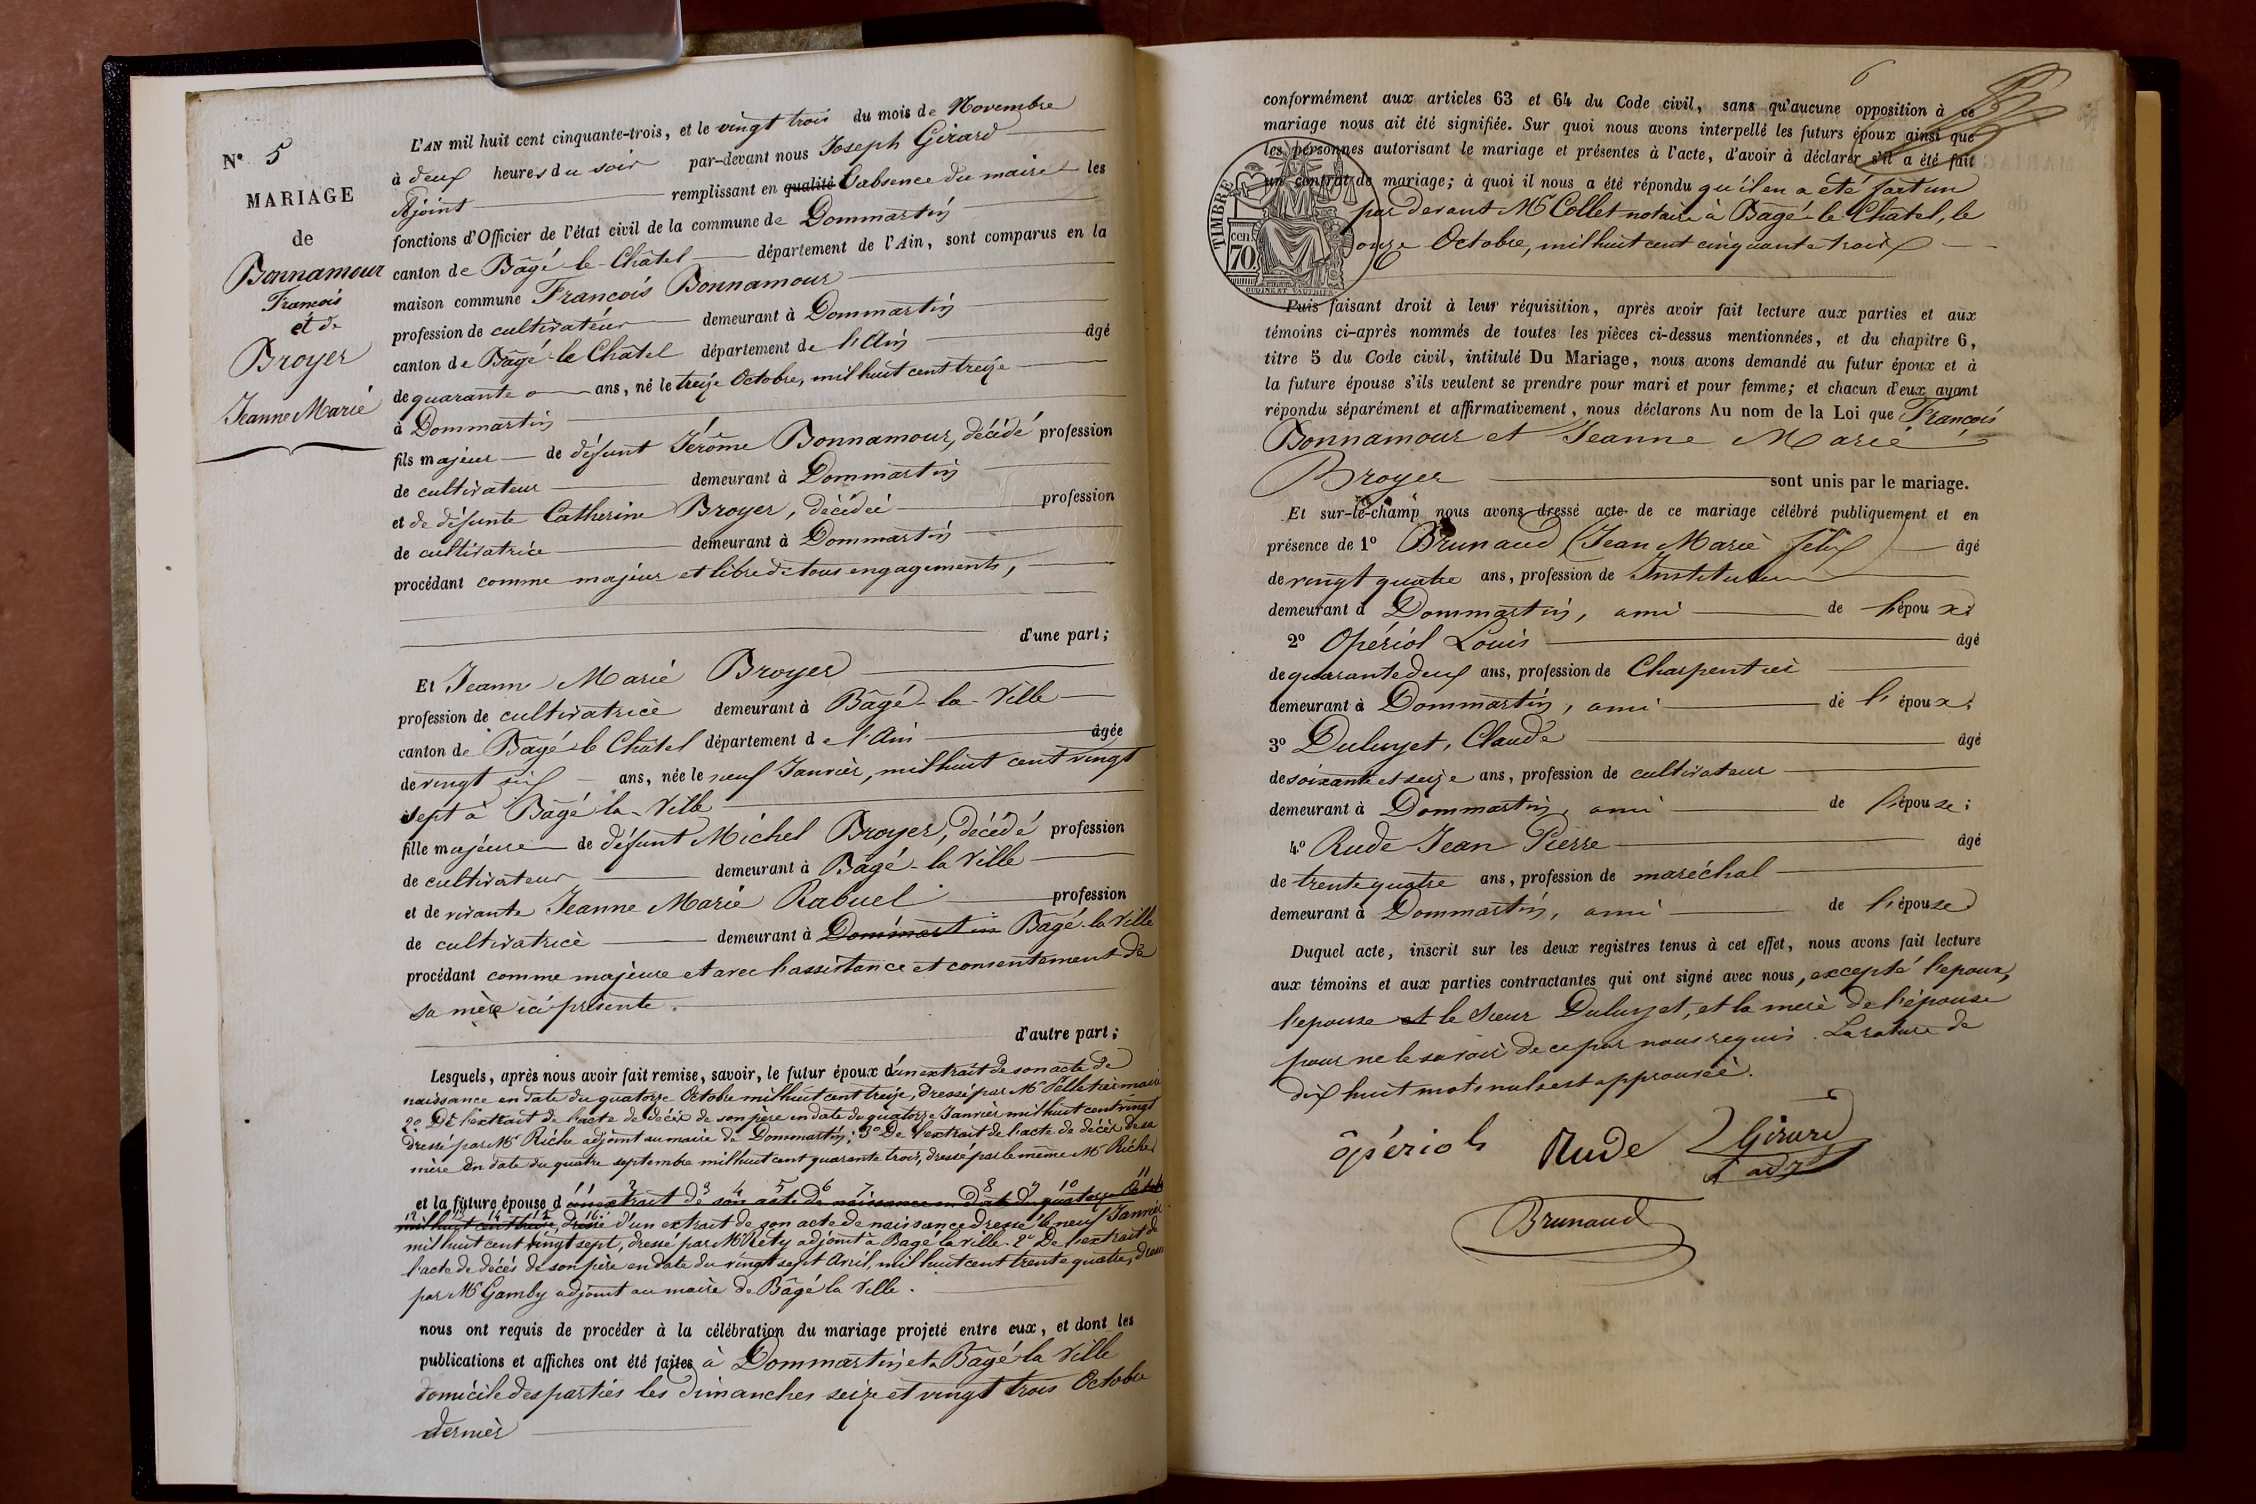 N° 5
MARIAGE
de
Bonnamour
François
et de
Broyer
Jeanne Marie
L'AN mil huit cent cinquante-trois, et le vingt trois du mois de Novembre
à deux heures du soir par-devant nous Joseph Girard
Ajoint remplissant en qualité l'absence du maire les
fonctions d'Officier de l'état civil de la commune de Dommartin
canton de Bâgé-le-Châtel département de l'Ain, sont comparus en la
maison commune François Bonnamour
profession de cultivateur demeurant à Dommartin
canton de Bâgé-le-Châtel département de l'Ain âgé
de quarante ans, né le treize Octobre, mil huit cent treize
à Dommartin
fils majeur de défunt Jérôme Bonnamour, décédé profession
de cultivateur demeurant à Dommartin
et de défunte Catherine Broyer, décédée profession
de cultivatrice demeurant à Dommartin
procédant comme majeur et libre de tous engagements,
d'une part;
Et Jeanne Marie Broyer
profession de cultivatrice demeurant à Bâgé-la-Ville
canton de Bâgé-le-Châtel département de l'Ain âgée
de vingt six ans, née le neuf Janvier, mil huit cent vingt
sept à Bâgé-la-Ville
fille majeure de défunt Michel Broyer, décédé profession
de cultivateur demeurant à Bâgé-la-Ville
et de vivante Jeanne Marie Rabuel profession
de cultivatrice demeurant à Dommartin Bâgé-la-Ville
procédant comme majeure et avec l'assistance et consentement de
sa mère ici présente.
d'autre part;
Lesquels, après nous avoir fait remise, savoir, le futur époux d'un extrait de son acte de
naissance en date du quatorze Octobre mil huit cent treize, dressé par Mr Pelletier maire
2° De l'extrait de l'acte de décès de son père en date du quatorze Janvier mil huit cent vingt
dressé par Mr Riche adjoint au maire de Dommartin; 3° De l'extrait de l'acte de décès de sa
mère en date du quatre septembre mil huit cent quarante trois, dressé par le même Mr Riche
1 2 3 4 5 6 7 8 9 10 11
et la future épouse d'un extrait de son acte de naissance en date du quatorze Octobre
12 13 14 15 16
mil huit cent treize, dressé d'un extrait de son acte de naissance dressé le neuf Janvier
mil huit cent vingt sept, dressé par Mr Réty adjoint à Bagé la ville. 2° De l'extrait de
l'acte de décès de son père en date du vingt sept Avril, mil huit cent trente quatre, dressé
par Mr Gamby adjoint au maire de Bâgé la Ville.
nous ont requis de procéder à la célébration du mariage projeté entre eux, et dont les
publications et affiches ont été faites à Dommartin et Bâgé la Ville
domicile des parties les dimanches seize et vingt trois Octobre
dernier
6
conformément aux articles 63 et 64 du Code civil, sans qu'aucune opposition à ce
mariage nous ait été signifiée. Sur quoi nous avons interpellé les futurs époux ainsi que
les personnes autorisant le mariage et présentes à l'acte, d'avoir à déclarer s'il a été fait
un contrat de mariage; à quoi il nous a été répondu qu'il en a été fait un
par devant Mr Collet notaire à Bâgé-le-Châtel, le
onze Octobre, mil huit cent cinquante trois
TIMBRE
cen
70
Puis faisant droit à leur réquisition, après avoir fait lecture aux parties et aux
témoins ci-après nommés de toutes les pièces ci-dessus mentionnées, et du chapitre 6,
titre 5 du Code civil, intitulé Du Mariage, nous avons demandé au futur époux et à
la future épouse s'ils veulent se prendre pour mari et pour femme; et chacun d'eux ayant
répondu séparément et affirmativement, nous déclarons Au nom de la Loi que François
Bonnamour et Jeanne Marie
Broyer sont unis par le mariage.
Et sur-le-champ nous avons dressé acte de ce mariage célébré publiquement et en
présence de 1° Brunaud (Jean Marie Félix) âgé
de vingt quatre ans, profession de Instituteur
demeurant à Dommartin, ami de l'époux;
2° Opériol Louis âgé
de quarante deux ans, profession de Charpentier
demeurant à Dommartin, ami de l'époux;
3° Duluyet, Claude âgé
de soixante et seize ans, profession de cultivateur
demeurant à Dommartin, ami de l'épouse;
4° Rude Jean Pierre âgé
de trente quatre ans, profession de maréchal
demeurant à Dommartin, ami de l'épouse
Duquel acte, inscrit sur les deux registres tenus à cet effet, nous avons fait lecture
aux témoins et aux parties contractantes qui ont signé avec nous, excepté l'epoux,
l'epouse et le Sieur Duluyet, et la mère de l'épouse
pour ne le savoir de ce par nous requis. La rature de
dix huit mots nuls est approuvée.
opériol Rude Girard
adjt
Brunaud